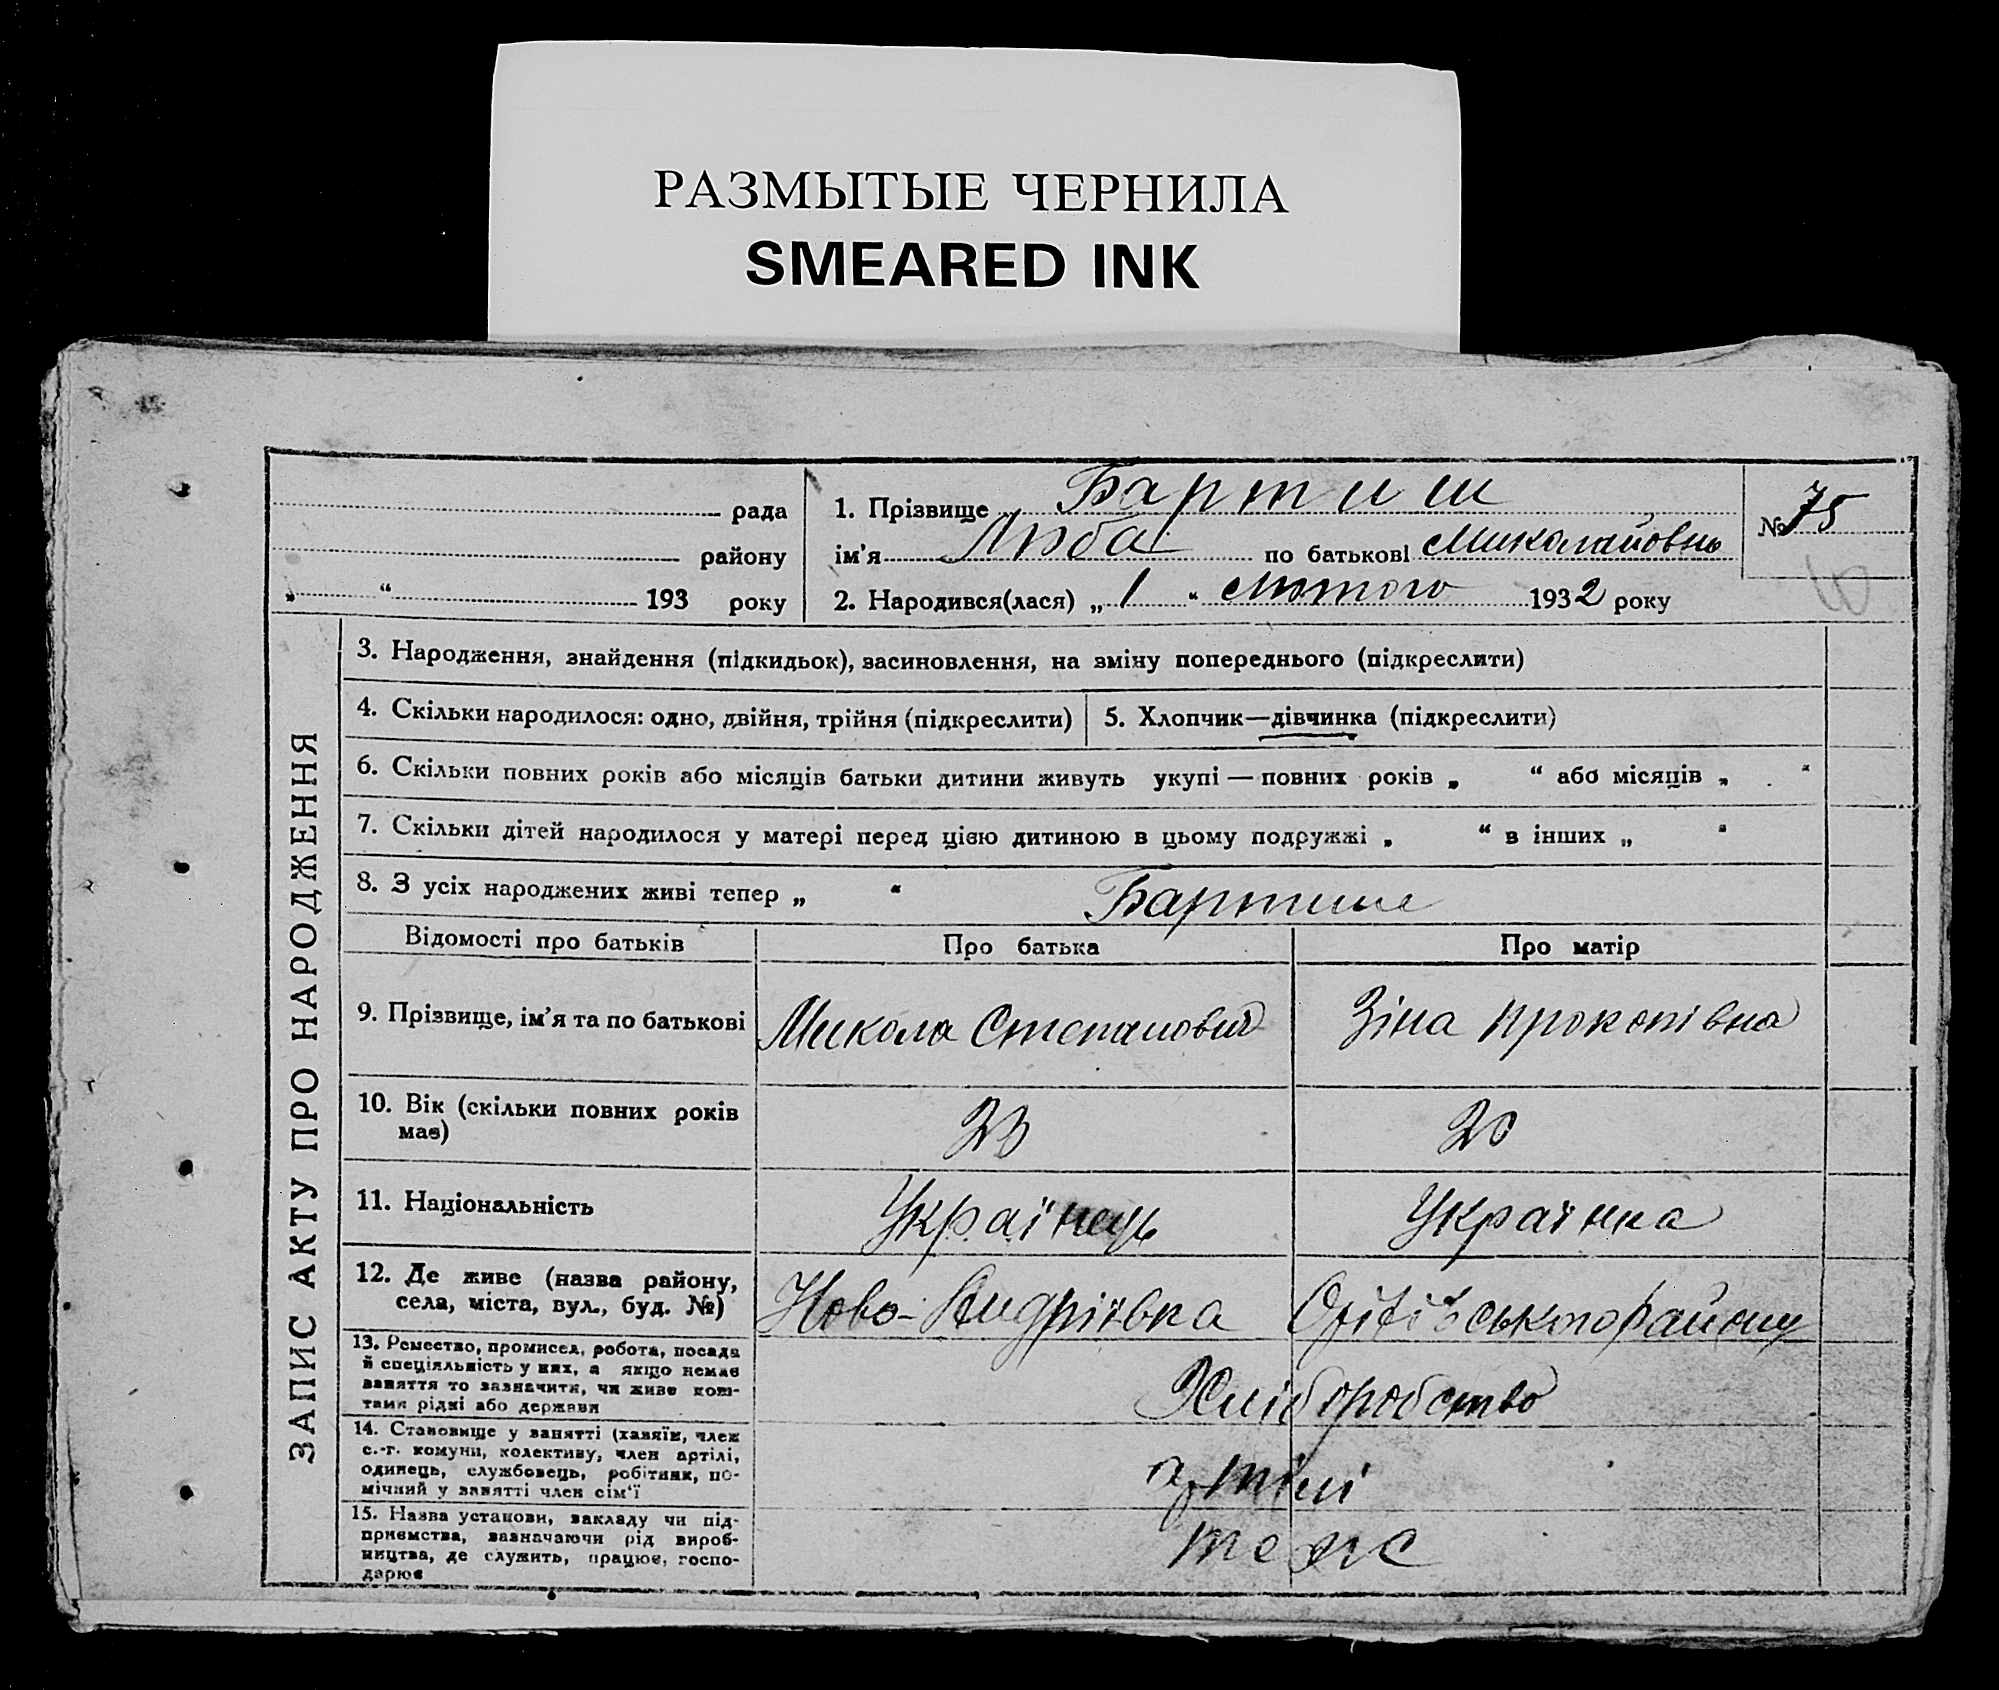 РАЗМЫТЫЕ ЧЕРНИЛА
SMEARED INK
рада
району
„ “ 193 року
1. Прізвище Бартиш
ім'я Люба по батькові Миколайовна
2. Народився(лася) „ 1 “ Лютого 1932 року
№ 75
ЗАПИС АКТУ ПРО НАРОДЖЕННЯ
3. Народження, знайдення (підкидьок), засиновлення, на зміну попереднього (підкреслити)
4. Скільки народилося: одно, двійня, трійня (підкреслити)
5. Хлопчик—дівчинка (підкреслити)
6. Скільки повних років або місяців батьки дитини живуть укупі — повних років „ “ або місяців „ “
7. Скільки дітей народилося у матері перед цією дитиною в цьому подружжі „ “ в інших „ “
8. З усіх народжених живі тепер „ “
Відомості про батьків
Про батька
Про матір
9. Прізвище, ім'я та по батькові
Микола Степанович
Зіна Прокопівна
10. Вік (скільки повних років
має)
23
20
11. Національність
Українець
Українка
12. Де живе (назва району,
села, міста, вул., буд. №)
Ново-Андріївка
району
13. Ремество, промисел, робота, посада
й спеціяльність у них, а якщо немає
заняття то зазначити, чи живе кош-
тами рідні або держави
Хліборобство
14. Становище у занятті (хазяїн, член
с.-г. комуни, колективу, член артілі,
одинець, службовець, робітник, по-
мічний у занятті член сім'ї
артілі
15. Назва установи, закладу чи під-
приємства, зазначаючи рід вироб-
ництва, де служить, працює, госпо-
дарює
теж